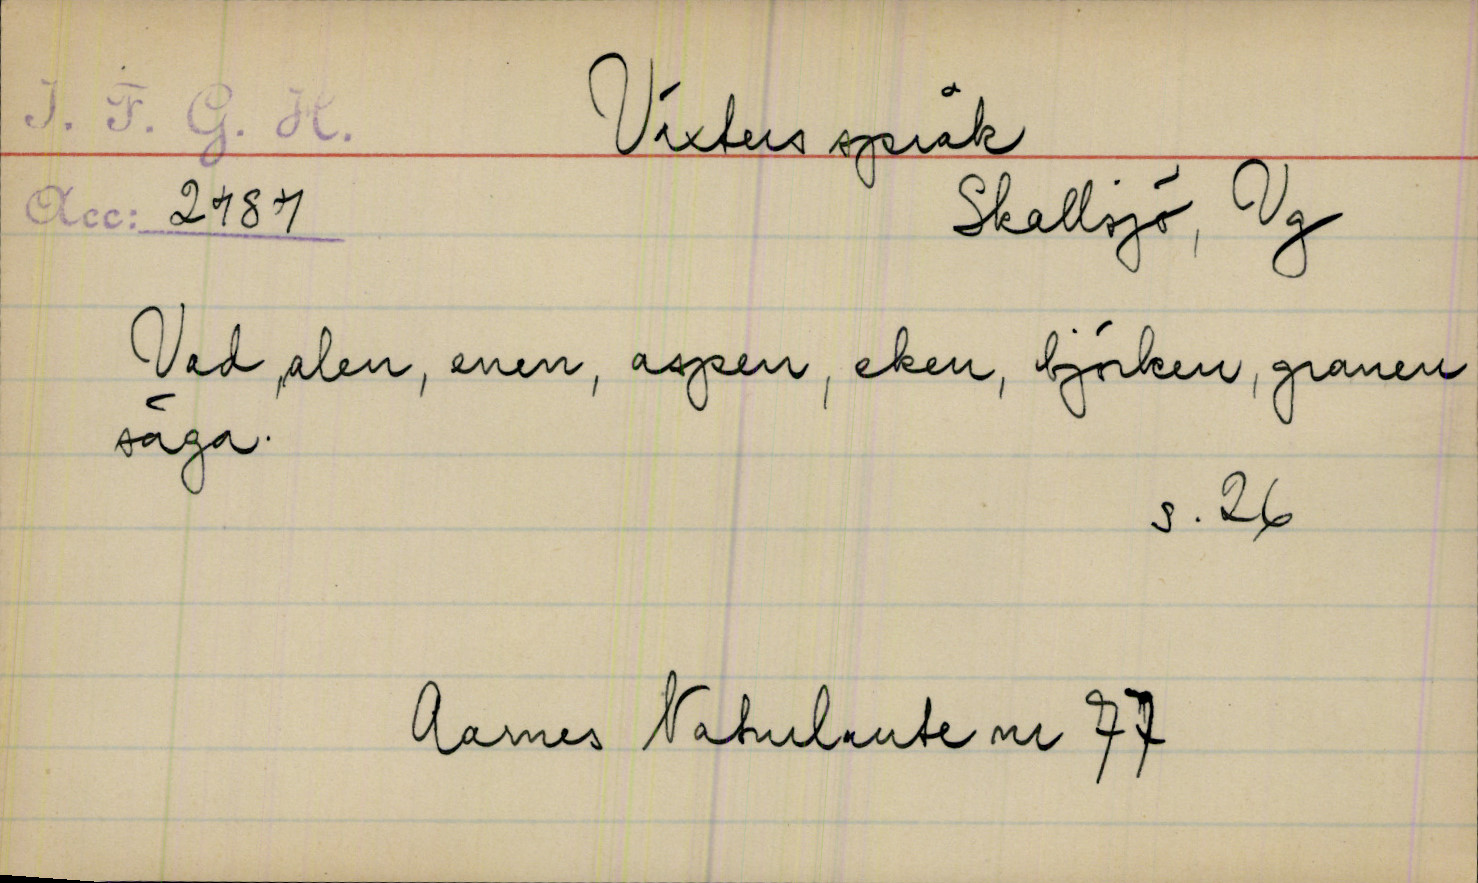 I. F. G. H.
Växters språk
Acc: 2787
Skallsjö, Vg
Vad, alen, enen, aspen, eken, björken, granen
säga.
s. 26
Aarnes Naturlaute nr 77